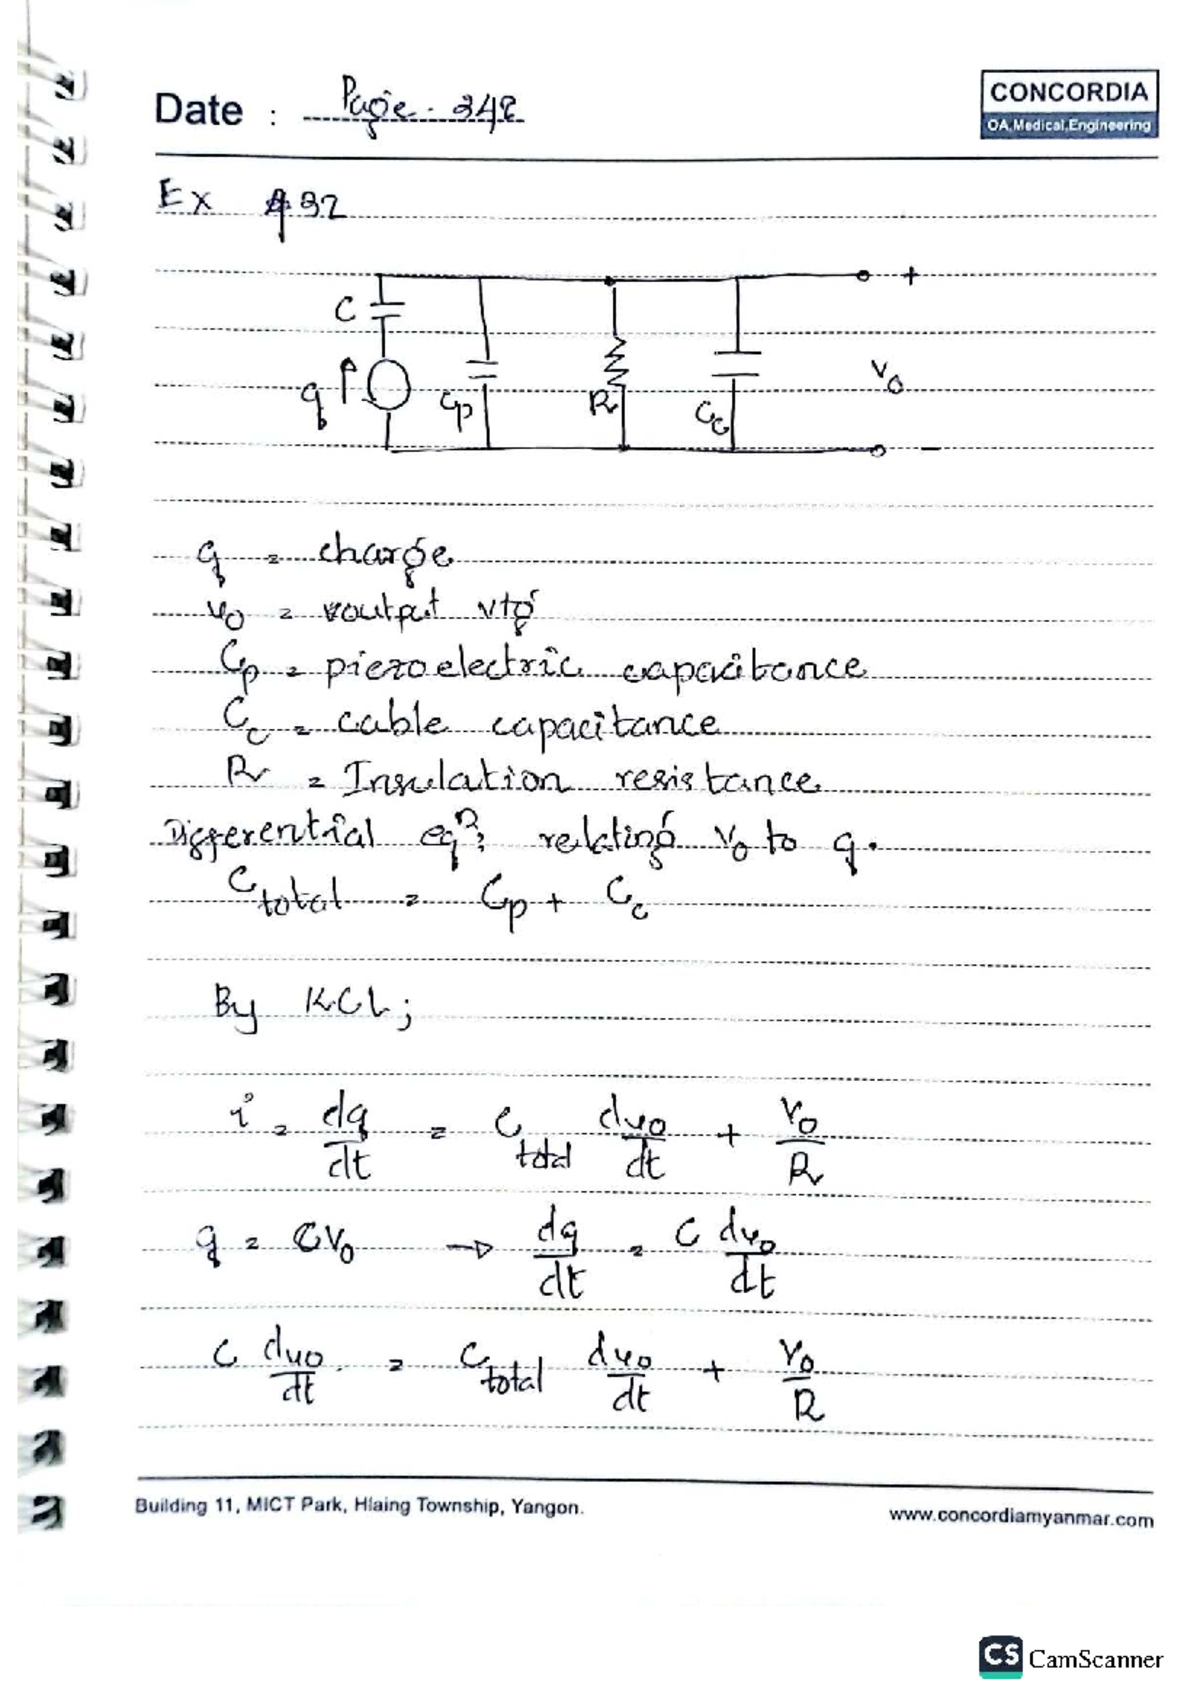 Date : Page - 348
CONCORDIA
OA,Medical,Engineering
Ex 432
C
q
Cp
R
Cc
+
vo
-
q = charge
vo = output vtg
Cp = piezoelectric capacitance
Cc = cable capacitance
R = Insulation resistance
Differential eqn; relating vo to q.
Ctotal = Cp + Cc
By KCL;
i = dq/dt = Ctotal dvo/dt + vo/R
q = Cvo → dq/dt = C dvo/dt
C dvo/dt = Ctotal dvo/dt + vo/R
Building 11, MICT Park, Hlaing Township, Yangon.
www.concordiamyanmar.com
CS CamScanner